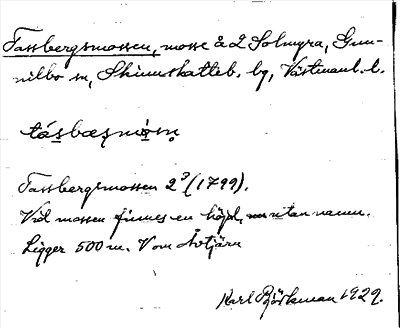 Tassbergsmossen, mosse å L Solmyra, Gun-
nilbo sn, Skinnskatteb. bg, Västmanl. l.
tásbæsmòsn̥
Tassbergsmossen 2³ (1799).
Vid mossen finnes en höjd, utan namn.
Ligger 500 m. V om Avtjärn
Karl Björkman 1929.